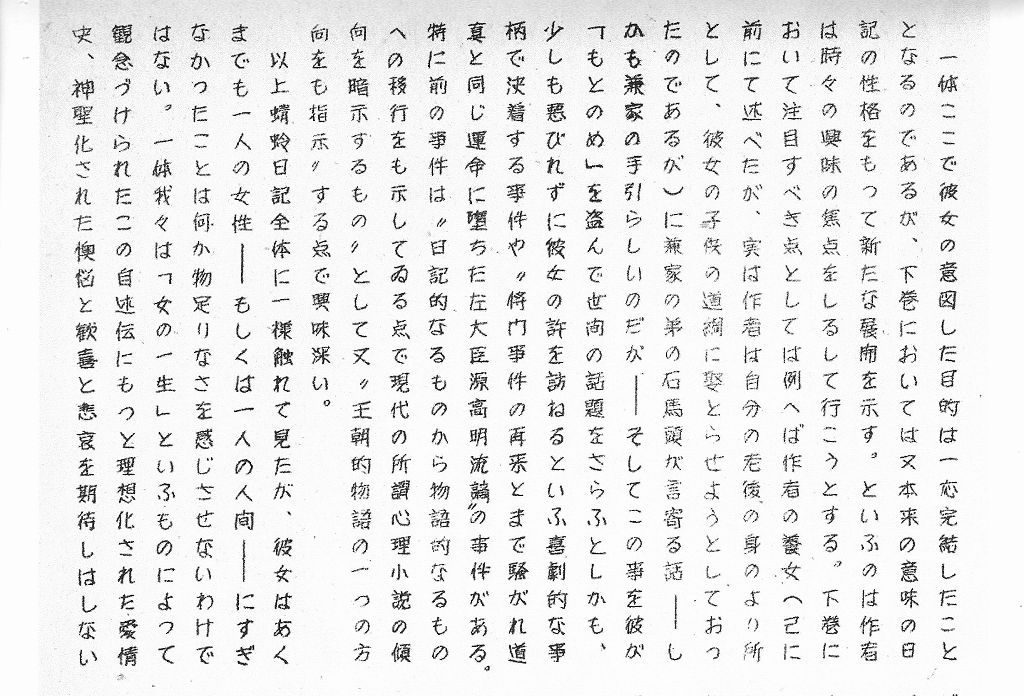 一体ここで彼女の意図した目的は一応完結したこと
となるのであるが、下巻においては又本来の意味の日
記の性格をもって新たな展開を示す。といふのは作者
は時々の興味の焦点をしるして行こうとする。下巻に
おいて注目すべき点としては例へば作者の養女へ己に
前にて述べたが、実は作者は自分の老後の身のより所
として、彼女の子供の道綱に娶とらせようとしておっ
たのであるが)に兼家の弟の右馬頭が言寄る話――し
かも兼家の手引らしいのだが――そしてこの事を彼が
「もとのめ」を盗んで世間の話題をさらふとしかも、
少しも悪びれずに彼女の許を訪ねるといふ喜劇的な事
柄で決着する事件や〃将門事件の再来とまで騒がれ道
真と同じ運命に堕ちた左大臣源高明流謫〃の事件がある。
特に前の事件は〃日記的なるものから物語的なるもの
への移行をも示してゐる点で現代の所謂心理小説の傾
向を暗示するもの〃として又〃王朝的物語の一つの方
向をも指示〃する点で興味深い。
以上蜻蛉日記全体に一様触れて見たが、彼女はあく
までも一人の女性――もしくは一人の人間――にすぎ
なかったことは何か物足りなさを感じさせないわけで
はない。一体我々は「女の一生」といふものによって
観念づけられたこの自述伝にもっと理想化された愛情
史、神聖化された懊悩と歓喜と悲哀を期待しはしない